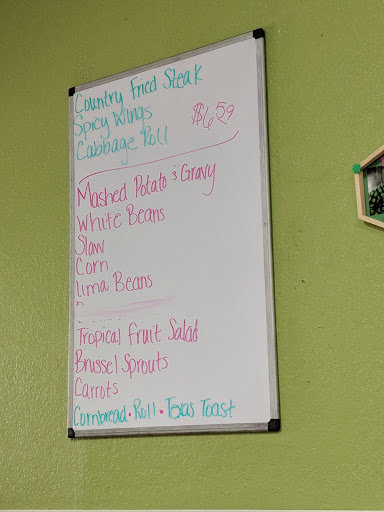 Country Fried Steak
Spicy Wings $6.59
Cabbage Roll
Mashed Potato & Gravy
White Beans
Slaw
Corn
Lima Beans
Tropical Fruit Salad
Brussel Sprouts
Carrots
Cornbread • Roll • Texas Toast